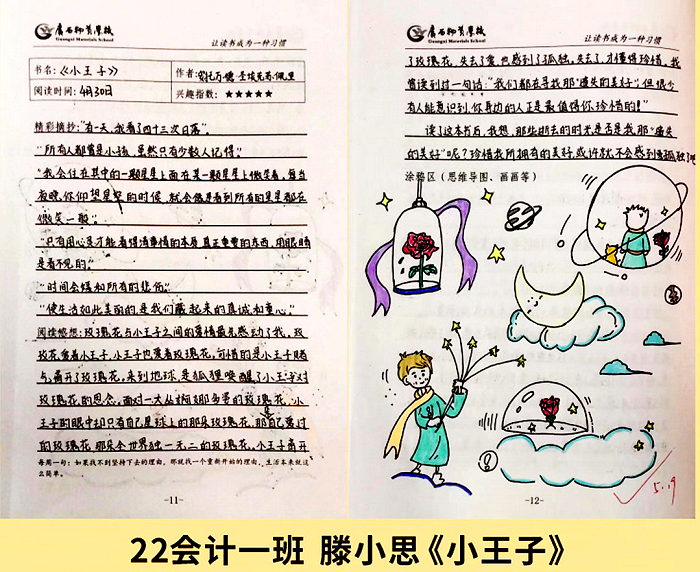 广西物资学校
Guangxi Materials School
让读书成为一种习惯
书名:《小王子》
作者:安托万·德·圣埃克苏佩里
阅读时间:4月30日
兴趣指数:★★★★★
精彩摘抄:“有一天,我看了四十三次日落”。
“所有人都曾是小孩,虽然只有少数人记得。”
“我会住在其中的一颗星星上面,在某一颗星星上微笑着,每当
夜晚,你仰望星空的时候,就会像是看到所有的星星都在
微笑一般。”
“只有用心灵才能看得清事情的本质,真正重要的东西,用眼睛
是看不见的。”
“时间会缓和所有的悲伤。”
“使生活如此美丽的,是我们藏起来的真诚和童心。”
阅读感想:玫瑰花与小王子之间的爱情最先感动了我。玫
玫花爱着小王子,小王子也爱着玫瑰花。可惜的是小王子赌
气离开了玫瑰花。来到地球,是狐狸唤醒了小王子对
玫瑰花的思念。面对一大丛
那多的玫瑰花,小
王子的眼中却只有自己星球上的那朵玫瑰花,那自己爱过
的玫瑰花,那朵全世界独一无二的玫瑰花。小王子离开
每周一句:如果找不到坚持下去的理由,那就找一个重新开始的理由,生活本来就这
么简单。
-11-
广西物资学校
Guangxi Materials School
让读书成为一种习惯
了玫瑰花,失去了爱,也感到了孤独。失去了,才懂得珍惜。我
曾读到过一句话:“我们都在寻找那‘遗失的美好’,但很少
有人能意识到,你身边的人正是最值得你珍惜的!”
读了这本书后,我想,那些逝去的时光是否是我那“遗失
的美好”呢?珍惜我所拥有的美好,或许就不会感到孤独了吧
涂鸦区(思维导图、画画等)
5.19
-12-
22会计一班 滕小思《小王子》